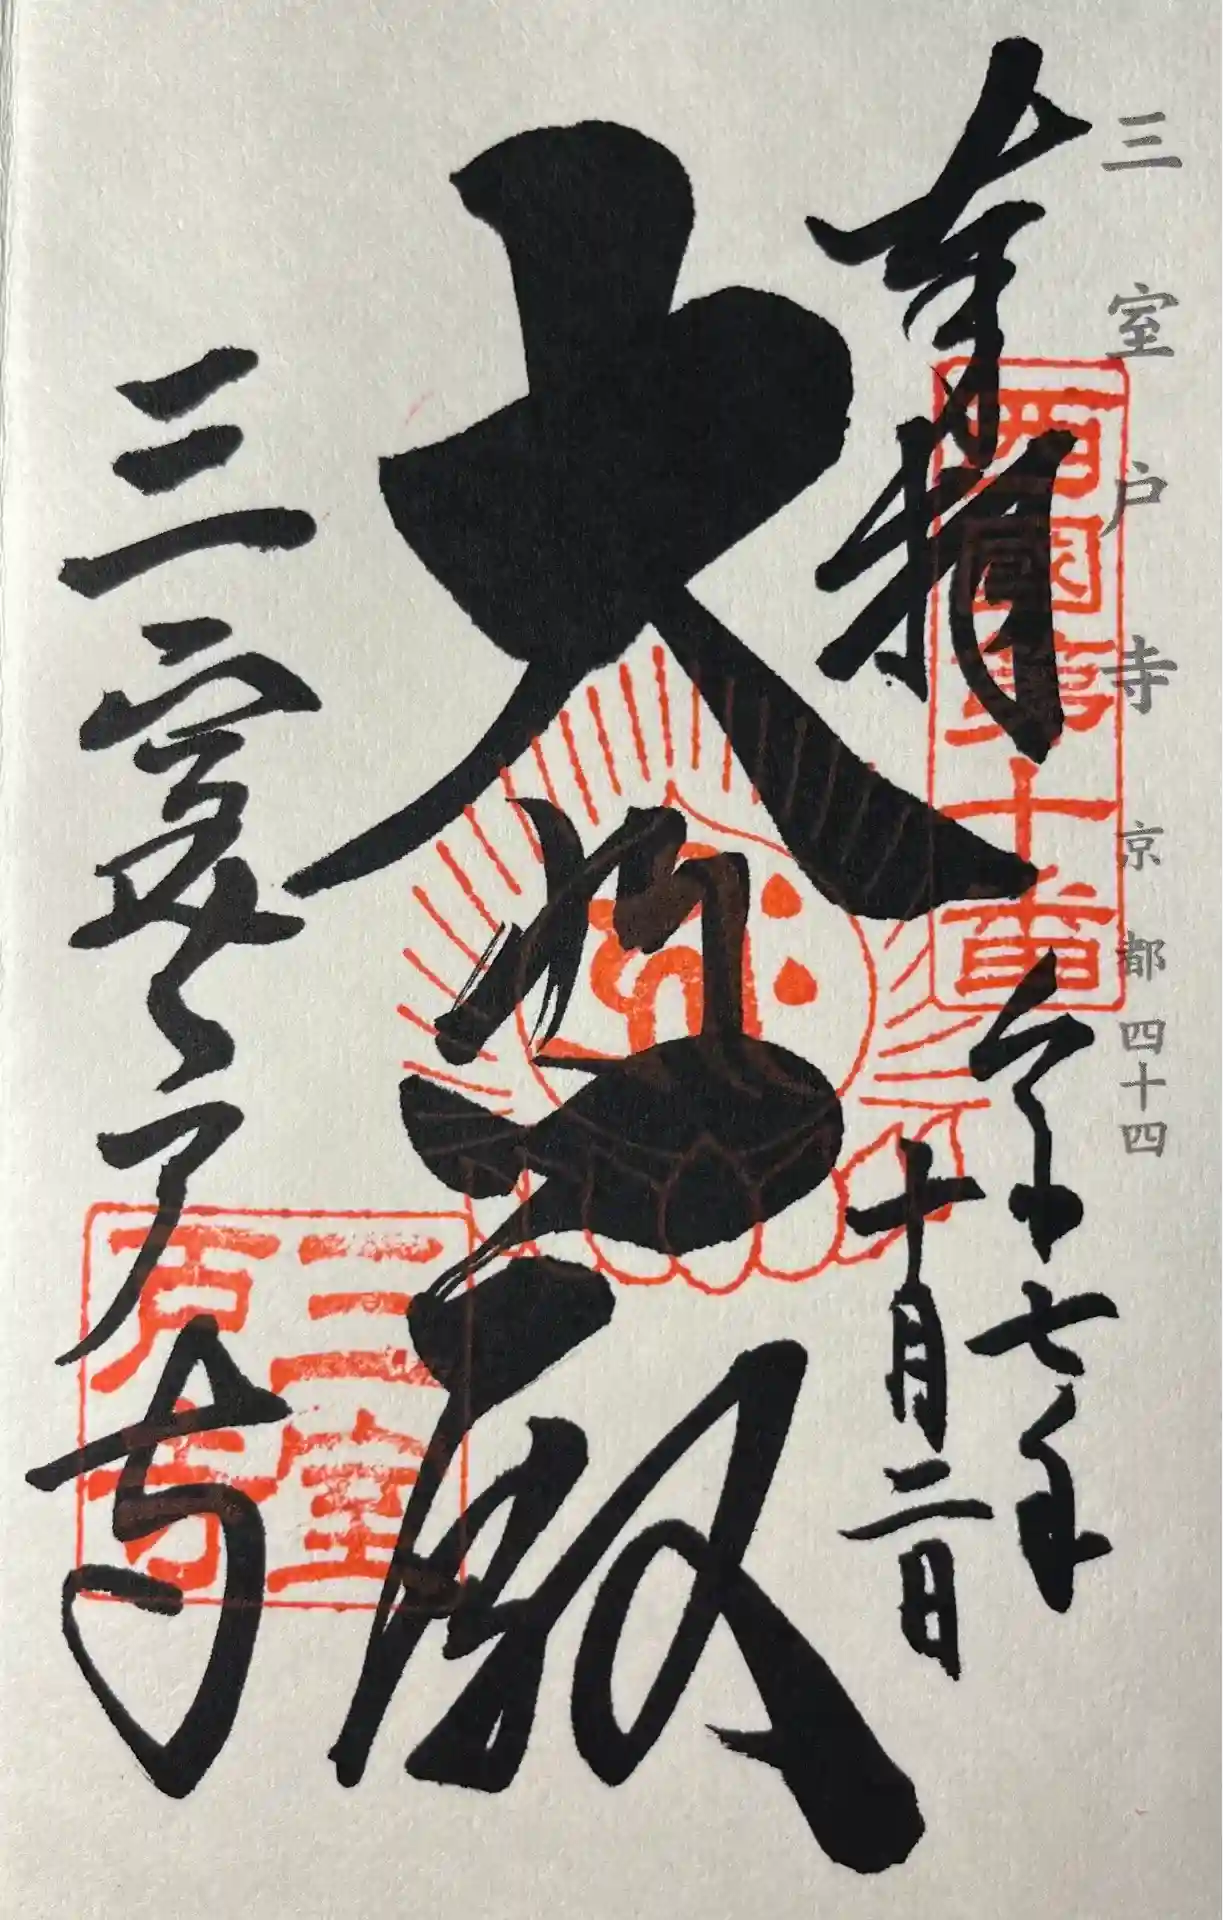 三室戸寺 京都 四十四
奉拝
西國第十番
令和七年
十月二日
大悲殿
三室戸寺
三室
戸寺